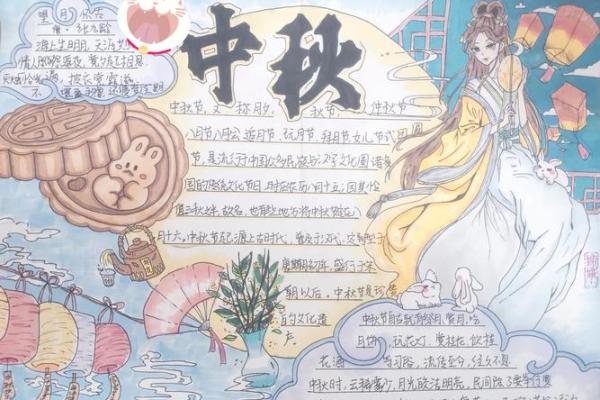 望月怀古
张九龄
海上生明月，天涯共
情人怨遥夜，竟夕起相思
灭烛怜光满，披衣觉露滋
不
中秋
中秋节，又称月夕、秋节、仲秋节
八月节、八月会、追月节、玩月节、拜月节、女儿节或团圆
节，是流行于中国众多民族与汉字文化圈诸
国的传统文化节日，时在农历八月十五；因其恰
值三秋之半，故名，也有些地方将中秋节定在八
月十六。中秋节始源上古时代，普及于汉代，定制于
唐朝初年，盛行于宋
朝以后。中秋节是
的文化遗
产
中秋节自古就有祭月、赏月、吃
月饼、玩花灯、赏桂花、饮桂
花酒等习俗，流传至今，经久不息
中秋时，云稀雾少，月光皎洁明亮，民间除了要举行赏